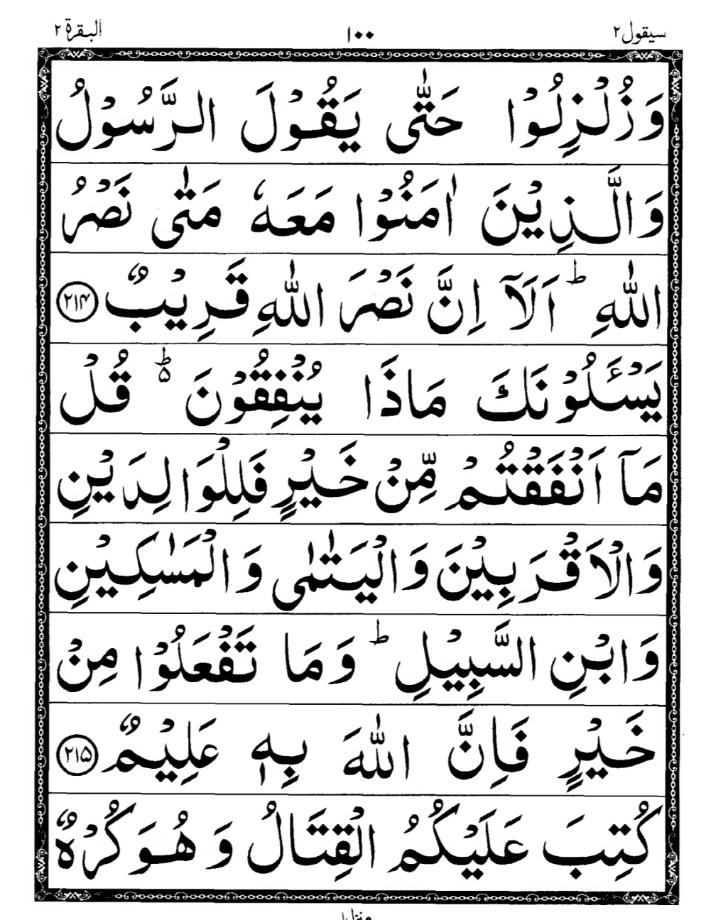 سیقول۲ ۱۰۰ البقرة ۲
وَزُلْزِلُوْا حَتّٰى يَقُوْلَ الرَّسُوْلُ
وَالَّذِيْنَ اٰمَنُوْا مَعَهٗ مَتٰى نَصْرُ
اللّٰهِ ؕ اَلَاۤ اِنَّ نَصْرَ اللّٰهِ قَرِيْبٌ ﴿۲۱۴﴾
يَسْـَٔلُوْنَكَ مَاذَا يُنْفِقُوْنَ ؕ۬ قُلْ
مَاۤ اَنْفَقْتُمْ مِّنْ خَيْرٍ فَلِلْوَالِدَيْنِ
وَالْاَقْرَبِيْنَ وَالْيَتٰمٰى وَالْمَسٰكِيْنِ
وَابْنِ السَّبِيْلِ ؕ وَمَا تَفْعَلُوْا مِنْ
خَيْرٍ فَاِنَّ اللّٰهَ بِهٖ عَلِيْمٌ ﴿۲۱۵﴾
كُتِبَ عَلَيْكُمُ الْقِتَالُ وَهُوَ كُرْهٌ
منزل۱